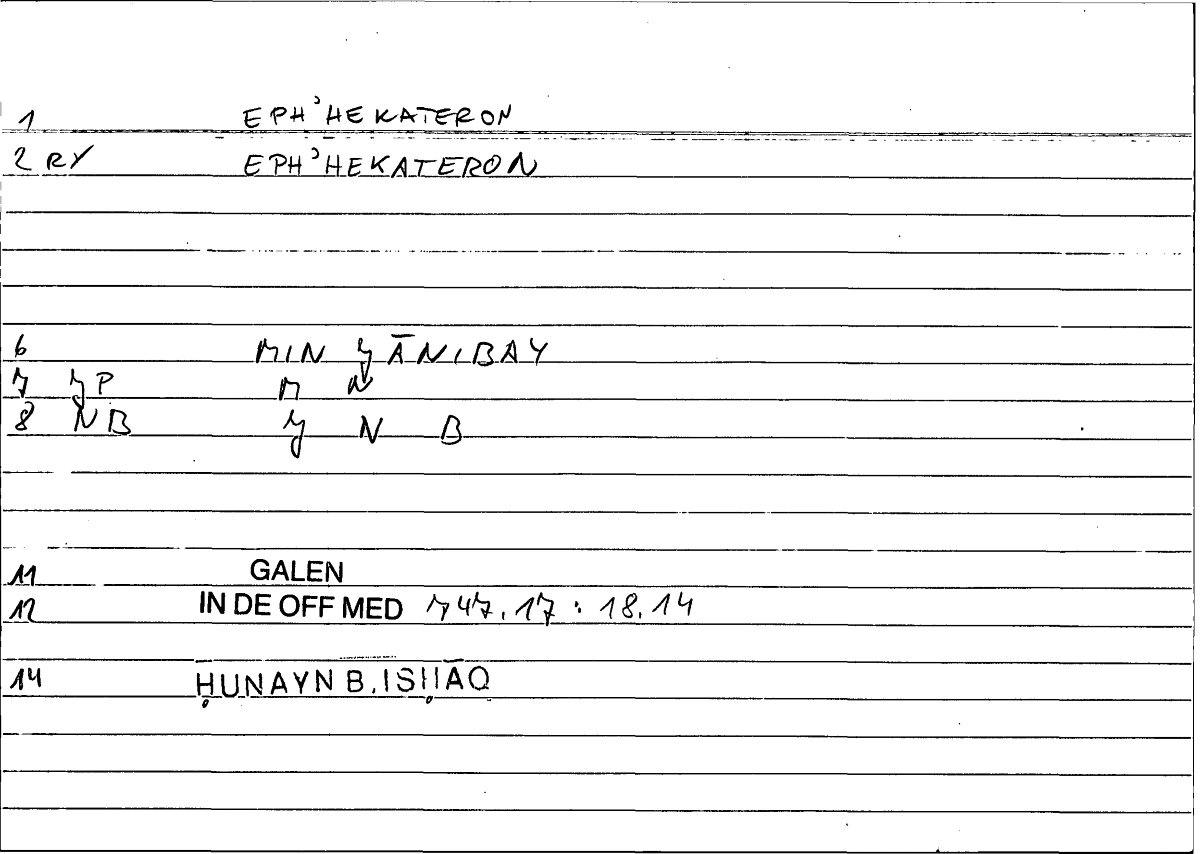 1 EPH'HEKATERON
2 RY EPH'HEKATERON
6 MIN ŶĀNIBAY
7 ŶP M N
8 NB Ŷ N B
11 GALEN
12 IN DE OFF MED 747.17 : 18.14
14 ḤUNAYN B. ISḤĀQ